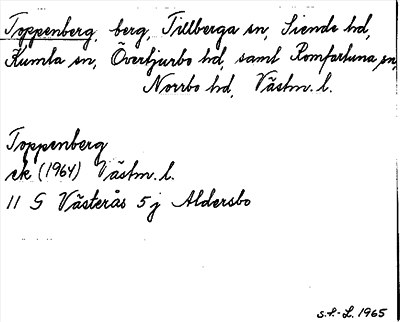 Toppenberg, berg, Tillberga sn, Siende hd,
Kumla sn, Övertjurbo hd, samt Romfartuna sn,
Norrbo hd, Västm. l.
Toppenberg
ek (1964) Västm. l.
11 G Västerås 5 j Aldersbo
s.f.-L. 1965